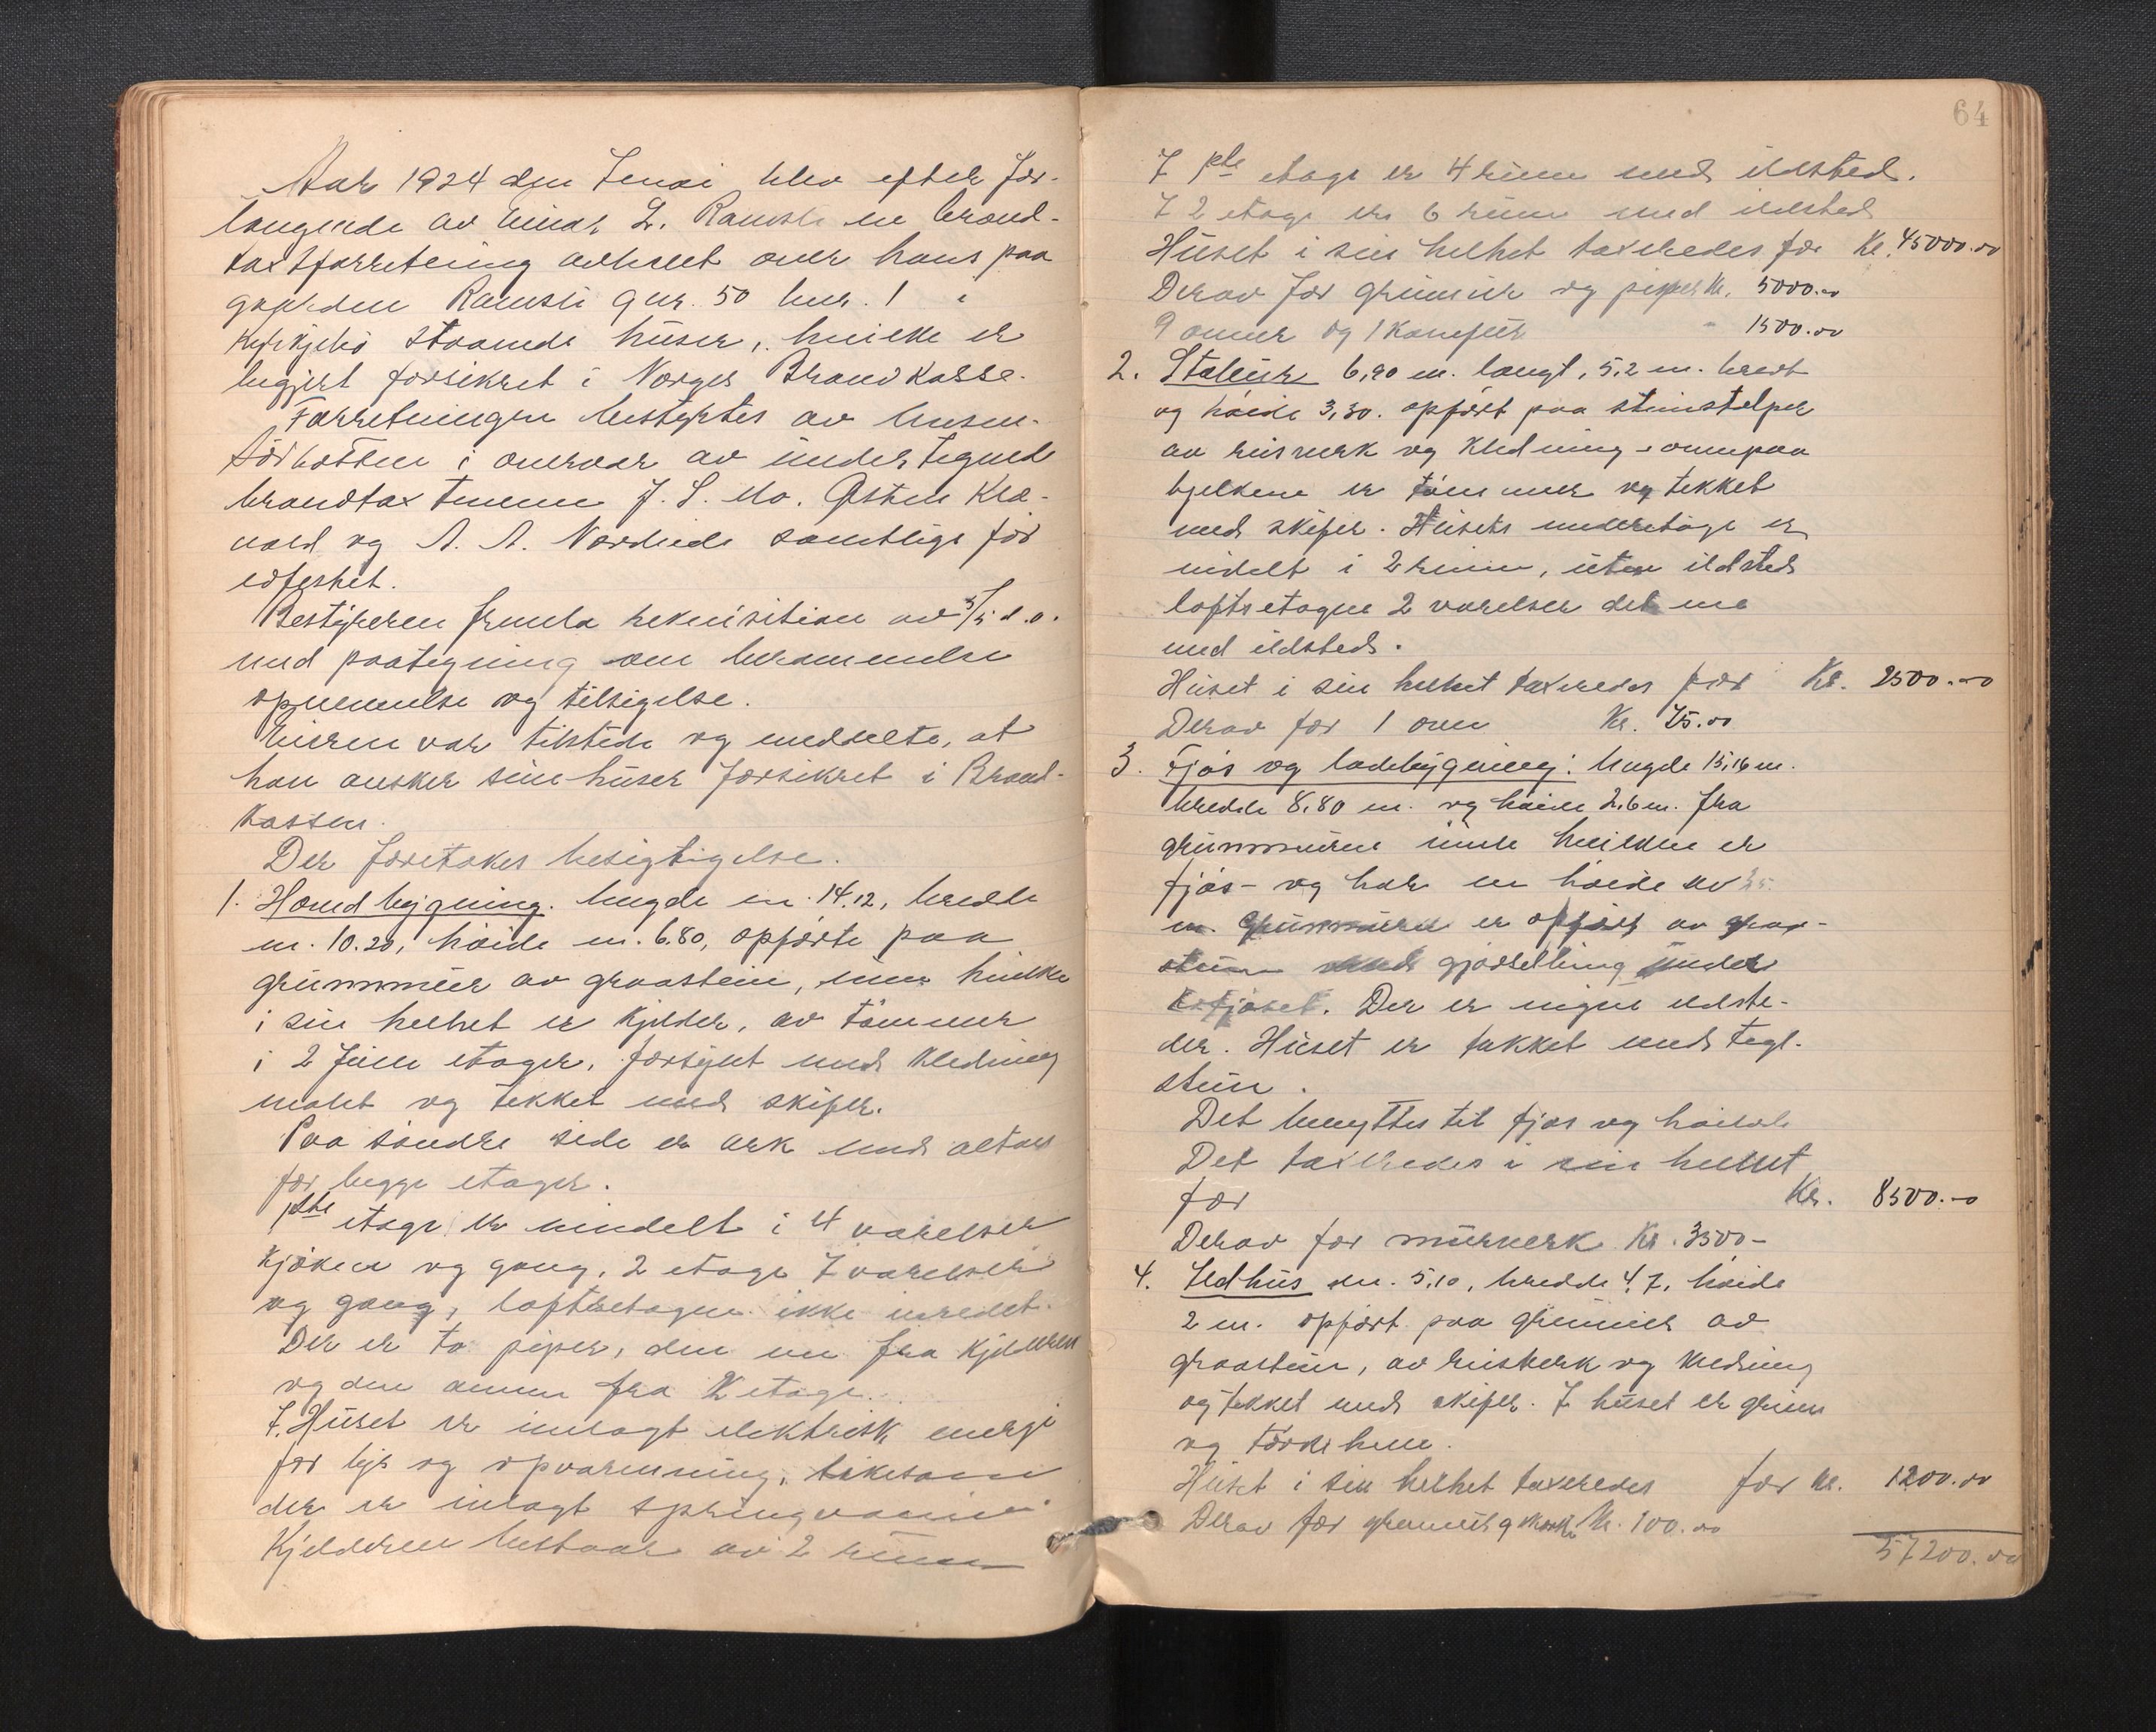 Aar 1924 den 7 mai blev efter for-
langende av Einar L. Ramsli en brand-
taxtforretning avholdt over hans paa
gaarden Ramsli gnr. 50 bnr. 1 i
staaende huser, hvilke er
begjært forsikret i Norges Brandkasse.
Forretningen bestyrtes av lensm-
i overvær av undertegnede
brandtaxtmenn J. S. Mo. Østen
og A. A. samtlige før
edfestet.
Bestyreren fremla rekvisition av d. a.
med paategning om berammelse
opnevnelse og tilsigelse.
Eieren var tilstede og meddelte, at
han ønsker sine huser forsikret i Brand-
kassen.
Der foretokes besigtigelse.
1. Hovedbygning. lengde m. 14.12, bredde
m. 10.20, høide m. 6.80, opført paa
grunnmur av graastein, hvilke
i sin helhet er kjelder, av tømmer
i 2 fulle etager, forsynt med kledning
malet og tekket med skifer.
Paa søndre side er ark med altan
for begge etager.
1ste etage er inndelt i 4 værelser
kjøken og gang, 2 etage 7 værelser
og gang, loftsetagen ikke inredet.
Der er to piper, den ene fra kjelderen
og den annen fra 2 etage.
I Huset er innlagt elektrisk energi
for lys og opvarmning, likesom
der er inlagt springvann
Kjelderen bestaar av 2 rum
64
I 1ste etage er 4 rum med ildsted.
I 2 etage er 6 rum med ildsted
Huset i sin helhet taxeredes for Kr. 45000.00
Derav for grunmur og piper Kr. 5000.00
9 ovner og 1 komfur " 1500.00
2. Stabur 6,90 m. langt, 5,2 m. bredt
og høide 3,30. opført paa steinstolper
av reisverk og kledning ovenpaa
bjelkene er tømmer og tekket
med skifer. Husets underetage er
indelt i 2 rum, uten ildsted
loftsetagen 2 værelser det ene
med ildsted.
Huset i sin helhet taxeredes for Kr. 2500.00
Derav for 1 ovn Kr. 75.00
3. Fjøs og ladebygning: lengde 15,16 m.
bredde 8,80 m. og høide 2,6 m. fra
grunnmuren hvilken er
fjøs- og har en høide av
m. Grunnmuren er opført av graa-
stein med gjødselbing under
fjøset. Der er ingen ildste-
der. Huset er takket med tegl-
stein.
Det benyttes til fjøs og
Det taxeredes i sin helhet
for Kr. 8500.00
Derav for murverk Kr. 3500-
4. Ildhus m. 5,10, bredde 4,7, høide
2 m. opført paa grunmur av
graastein, av reisverk og kledning
og tekket med skifer. I huset er
og
Huset i sin helhet taxeredes for Kr. 1200.00
Derav for grunmur og Kr. 100.00
57200.00